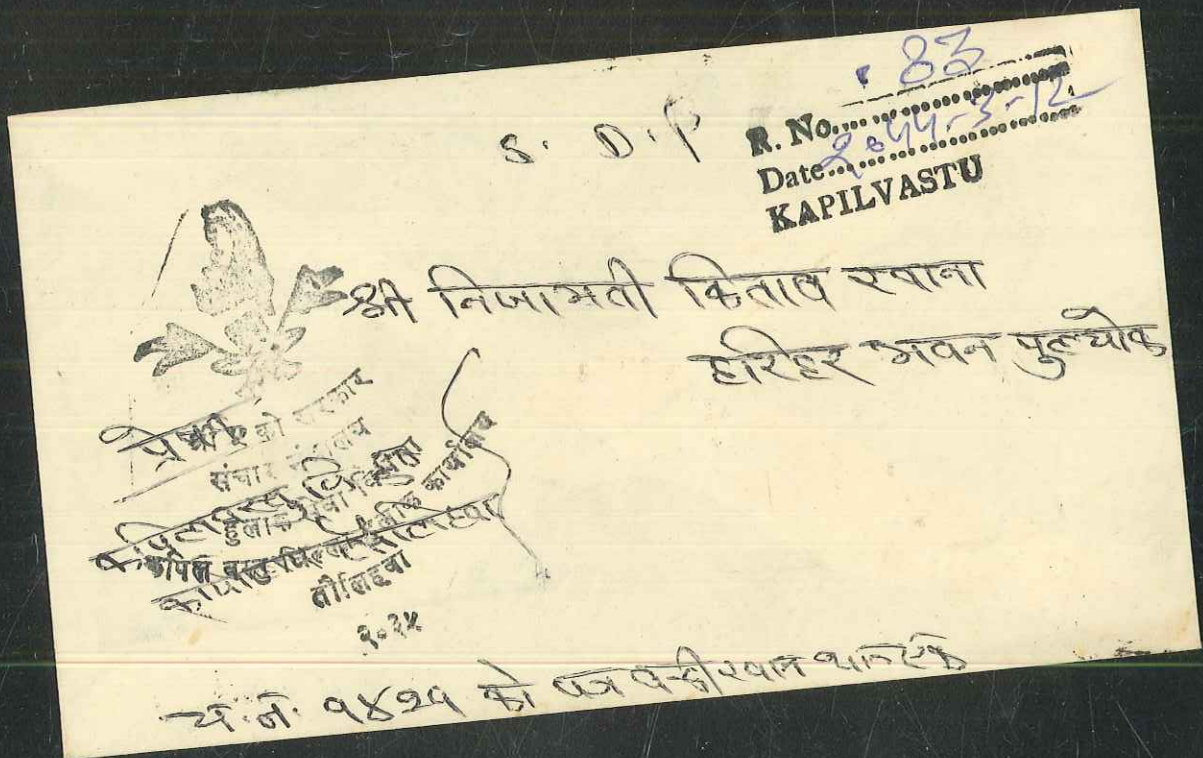 83
S. D. P
R. No.
Date 2044-3-12
KAPILVASTU
श्री निजामती किताव खाना
हरिहर भवन पुल्चोक
प्रेषक
श्री ५ को सरकार
संचार मन्त्रालय
हुलाक सेवा विभाग
कपिलवस्तु जिल्ला हुलाक कार्यालय
तौलिहवा
२०३५
च. नं. १४२१ को पत्र